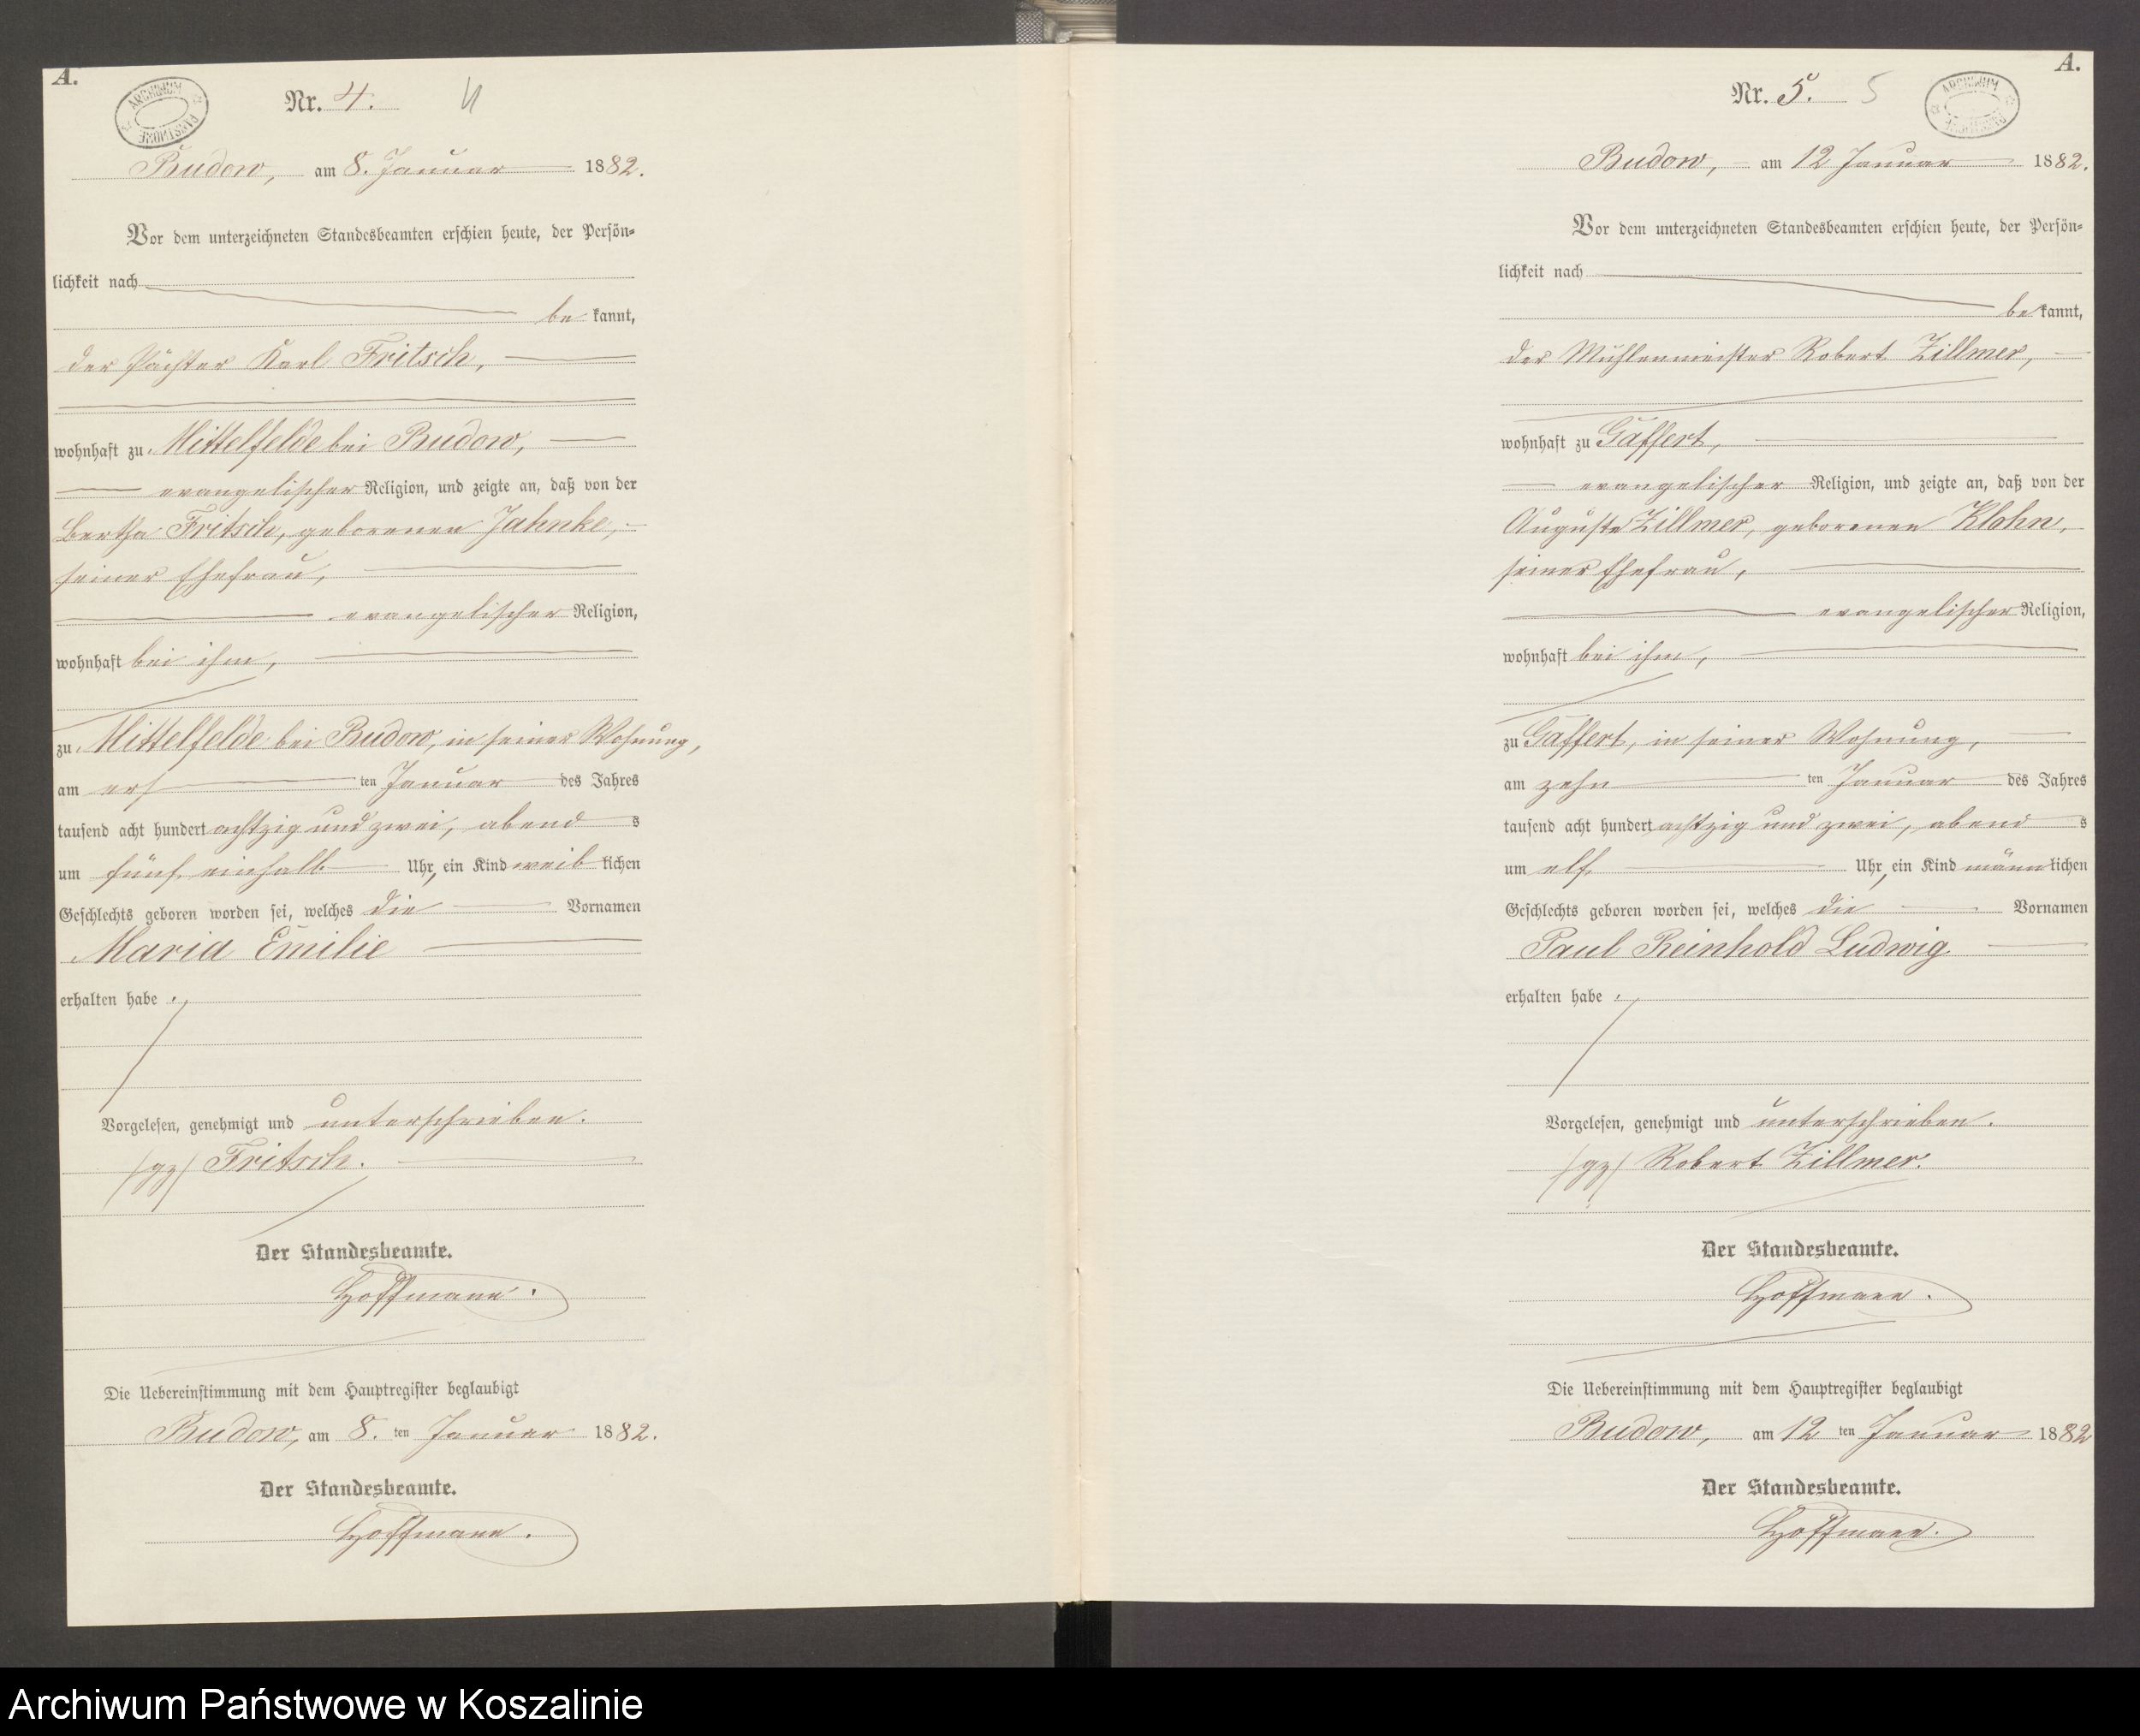 A.
ARCHIWUM PAŃSTWOWE
Nr. 4. 4
Budow, am 8. Januar 1882.
Vor dem unterzeichneten Standesbeamten erschien heute, der Persön-
lichkeit nach
be kannt,
der Pächter Karl Fritsch,
wohnhaft zu Mittelfelde bei Budow,
evangelischer Religion, und zeigte an, daß von der
Bertha Fritsch, geborenen Jahnke,
seiner Ehefrau,
evangelischer Religion,
wohnhaft bei ihm,
zu Mittelfelde bei Budow, in seiner Wohnung,
am ers ten Januar des Jahres
tausend acht hundert achtzig und zwei, abend s
um fünf einhalb Uhr, ein Kind weib lichen
Geschlechts geboren worden sei, welches die Vornamen
Maria Emilie
erhalten habe.
Vorgelesen, genehmigt und unterschrieben.
/gz/ Fritsch.
Der Standesbeamte.
Hoffmann.
Die Uebereinstimmung mit dem Hauptregister beglaubigt
Budow, am 8. ten Januar 1882.
Der Standesbeamte.
Hoffmann.
A.
ARCHIWUM PAŃSTWOWE
Nr. 5. 5
Budow, am 12 Januar 1882.
Vor dem unterzeichneten Standesbeamten erschien heute, der Persön-
lichkeit nach
be kannt,
der Mühlenmeister Robert Zillmer,
wohnhaft zu Gaffert,
evangelischer Religion, und zeigte an, daß von der
Auguste Zillmer, geborenen Klohn,
seiner Ehefrau,
evangelischer Religion,
wohnhaft bei ihm,
zu Gaffert, in seiner Wohnung,
am zehn ten Januar des Jahres
tausend acht hundert achtzig und zwei, abend s
um elf Uhr, ein Kind männ lichen
Geschlechts geboren worden sei, welches die Vornamen
Paul Reinhold Ludwig
erhalten habe.
Vorgelesen, genehmigt und unterschrieben.
/gz/ Robert Zillmer.
Der Standesbeamte.
Hoffmann.
Die Uebereinstimmung mit dem Hauptregister beglaubigt
Budow, am 12 ten Januar 1882
Der Standesbeamte.
Hoffmann.
Archiwum Państwowe w Koszalinie